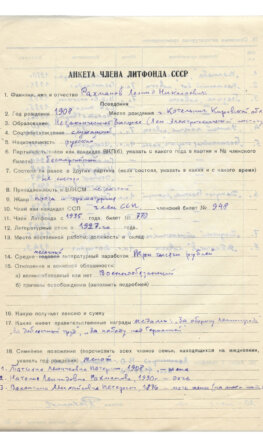 АНКЕТА ЧЛЕНА ЛИТФОНДА СССР
1. Фамилия, имя и отчество Рахманов Леонид Николаевич
Псевдоним
2. Год рождения 1908. Место рождения г. Котельнич Кировской обл.
3. Образование Незаконченное высшее (Лен. Электротехнич. институт)
4. Соцпроисхождение служащий
5. Национальность русский
6. Партийность (член или кандидат ВКП(б), указать с какого года в партии и № членского
билета) беспартийный
7. Состоял ли ранее в других партиях (если состоял, указать в каких и с какого времени)
не состоял
8. Принадлежность к ВЛКСМ
9. Жанр проза и драматургия
10. Член или кандидат ССП член ССП членский билет № 948
11. Член Литфонда с 1935 года, билет №
12. Литературный стаж с 1927 года
13. Место постоянной работы, должность и оклад
14. Средний месячный литературный заработок тысячи рублей
15. Отношение к воинской обязанности:
а) военнообязанный или нет Военнообязанный
б) причины освобождения (заполнять подробнее)
16. Какую получает пенсию и сумму
17. Какие имеет правительственные награды медали: „За оборону Ленинграда“,
„За доблестный труд“, „За победу над Германией“
18. Семейное положение (перечислить всех членов семьи, находящихся на иждивении,
указать год рождения) женат
1. Татьяна Леонтьевна Петерсон, 1908 г. – жена
2. Наталия Леонидовна Рахманова, 1930 – дочь
3. Петерсон, 1876 –